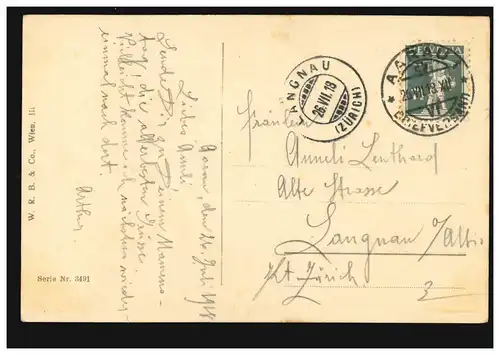 W. R. B. & Co., Wien, III
Serie Nr. 3491
Aarau, den 26. Juli 1918
Liebes Anneli
Sende Dir zu Deinem Namens-
tag! die allerbesten Grüsse.
Vielleicht komme ich nächstens wieder
einmal nach dort
Arthur
LANGNAU
26.VII.18
(ZÜRICH)
HELVETIA
AARAU
26.VII.18
BRIEFVERSAND
Fräulein
Anneli Lenthard
Alte Strasse
Langnau a/Albis
Kt. Zürich
3